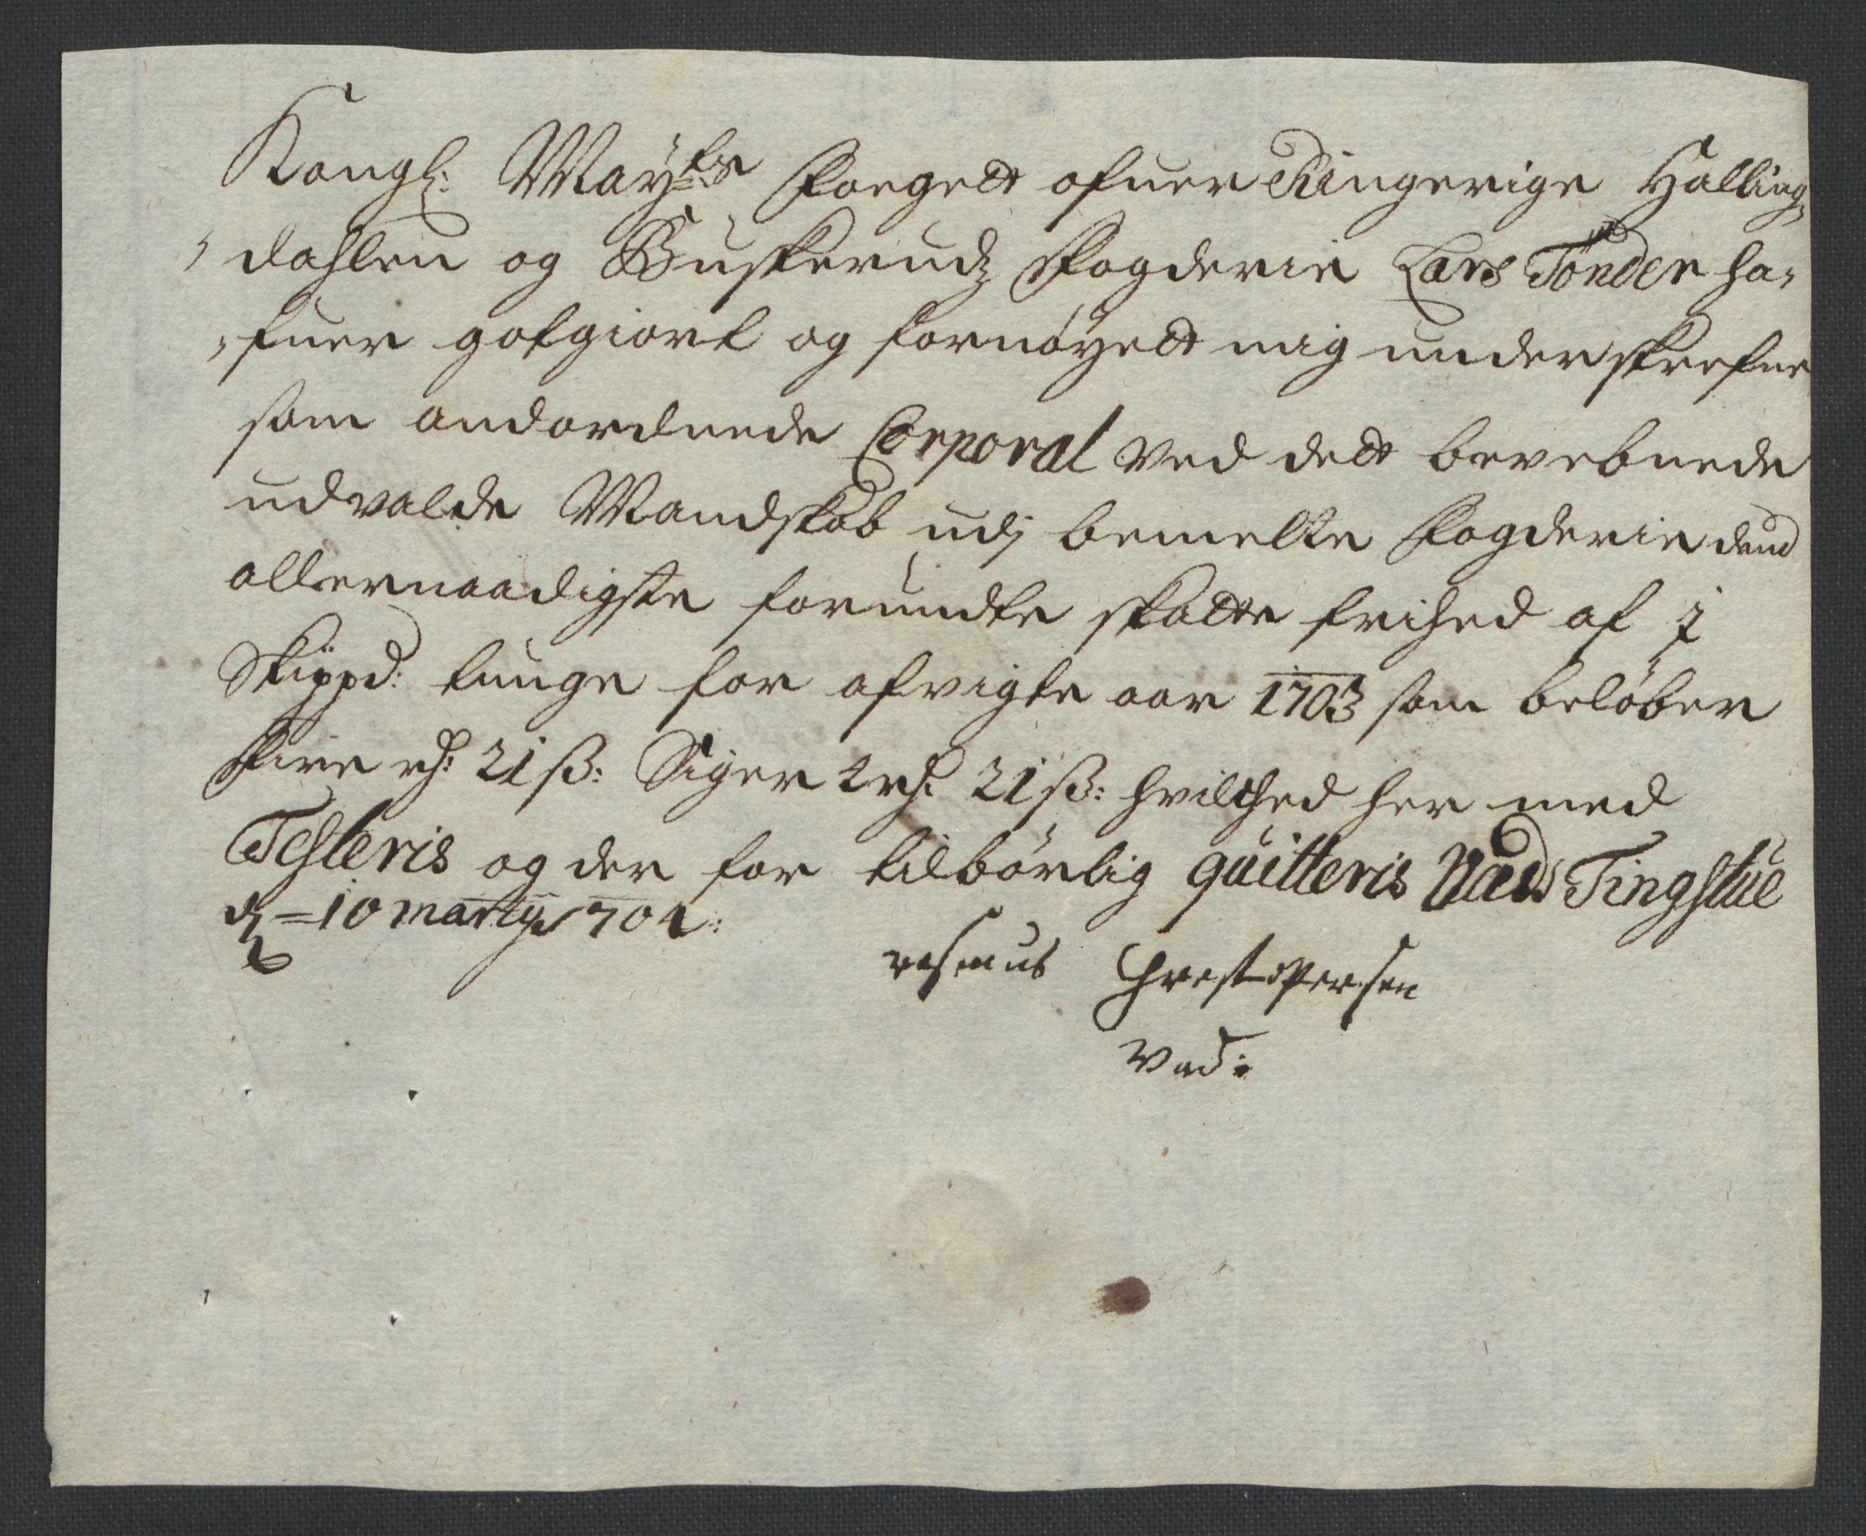 Kongl: May:ts Foegett ofuer Ringerige Halling,
dahlen og Buskeruds Fogderie Lars Tønder ha,
fuer gotgiort og fornøyett mig underskrefne
som andordnede Corporal ved dett bevebnede
udvalde Mandskab udj bemelte Fogderie dend
allernaadigste forundte skatte frihed af j
Skippd: tunge for afvigte aar 1703 som beløber
Fire rd: 21 ß: Siger 4 rd: 21 ß: hvilched her med
Testeris og der for tilbørlig quitteris Væds Tingstue
d = 10 marty 1704:
rasmus Chrestopersen
Vad: